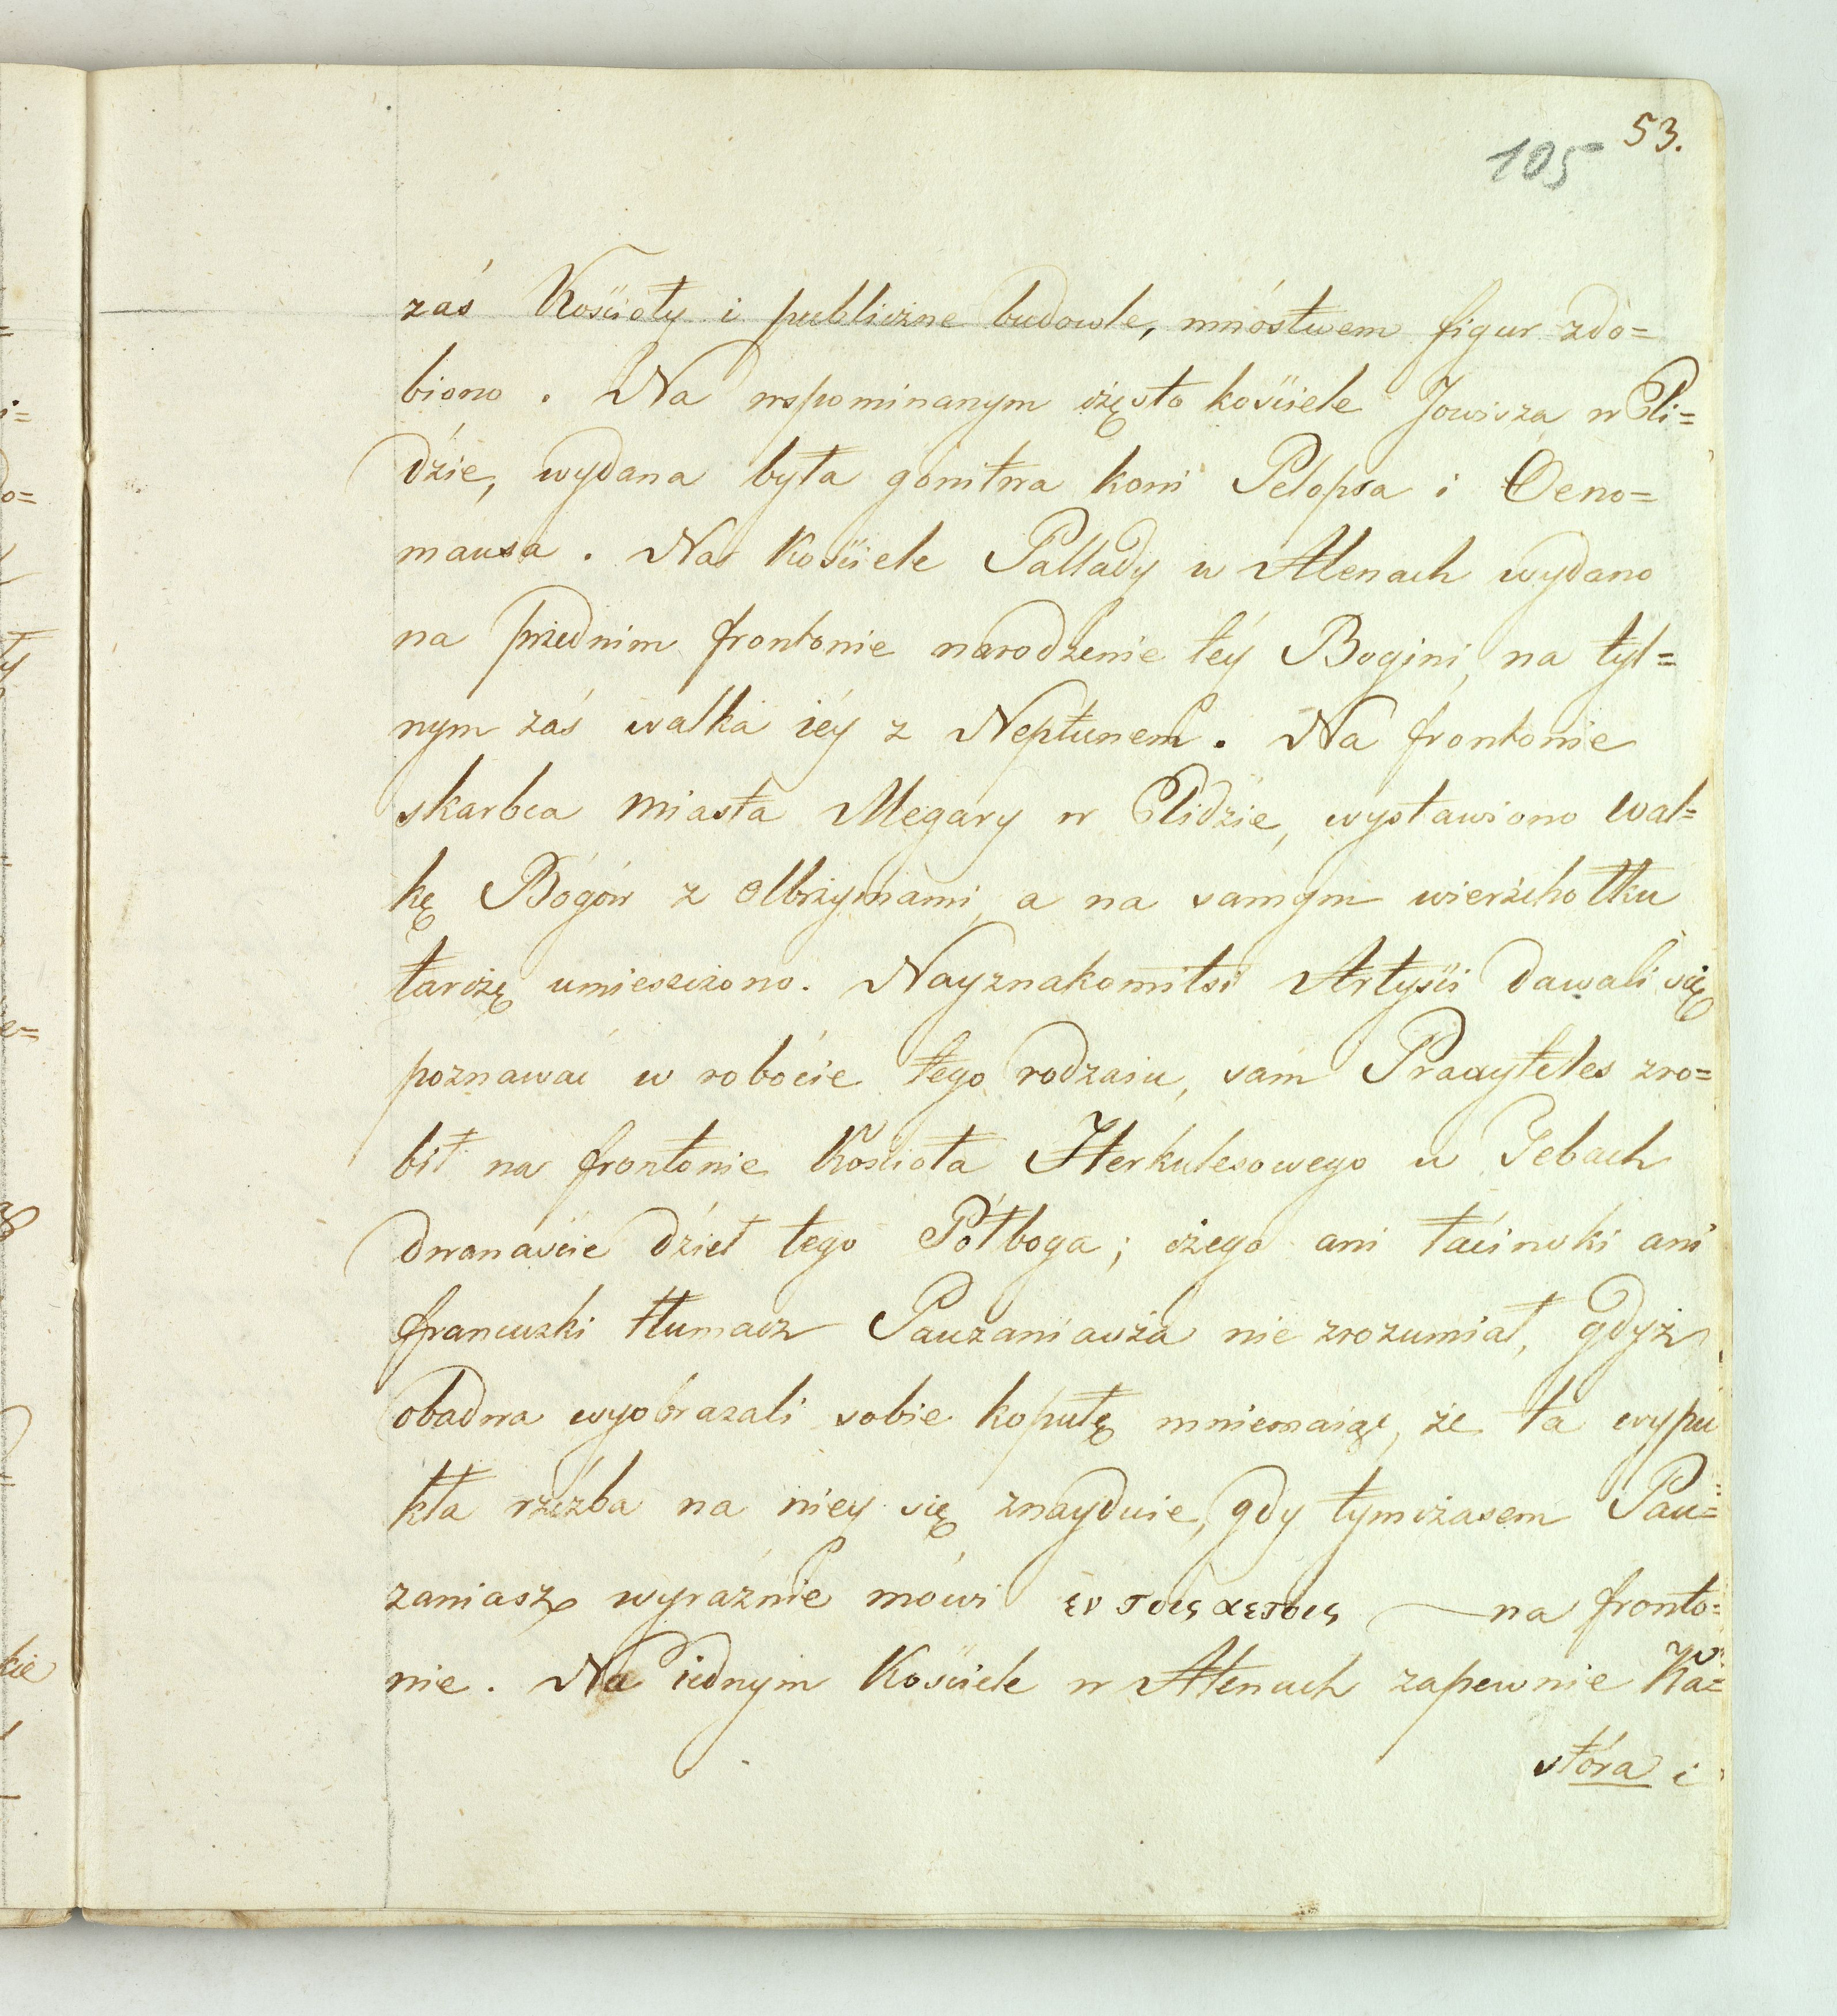 53.
105
zaś Kościoły i publiczne budowle, mnóstwem figur zdo=
biono. Na wspominanym często kościele Jowisza w Eli=
dzie, wydana była gonitwa koni Pelopsa i Oeno=
mausa. Na Kościele Pallady w Atenach wydano
na przednim frontonie narodzenie téy Bogini, na tyl=
nym zaś walka iéy z Neptunem. Na frontonie
skarbca miasta Megary w Elidzie, wystawiono wal=
kę Bogów z olbrzymami, a na samym wierzchołku
tarczę umieszczono. Nayznakomitsi Artyści dawali się
poznawać w robocie tego rodzaiu, sam Praxyteles zro=
bił na frontonie Kościoła Herkulesowego w Tebach
dwanaście dzieł tego Półboga; czego ani łaciński ani
francuzki tłumacz Pauzaniasza nie zrozumiał, gdyż
obadwa wyobrazali sobie kopułę mniemaiąc, że ta wypu
kła rzeźba na niey się znayduie, gdy tymczasem Pau=
zaniasz wyraźnie mówi εν τοις αετοις — na fronto=
nie. Na iednym Kościele w Atenach zapewnie Ka=
stóra i